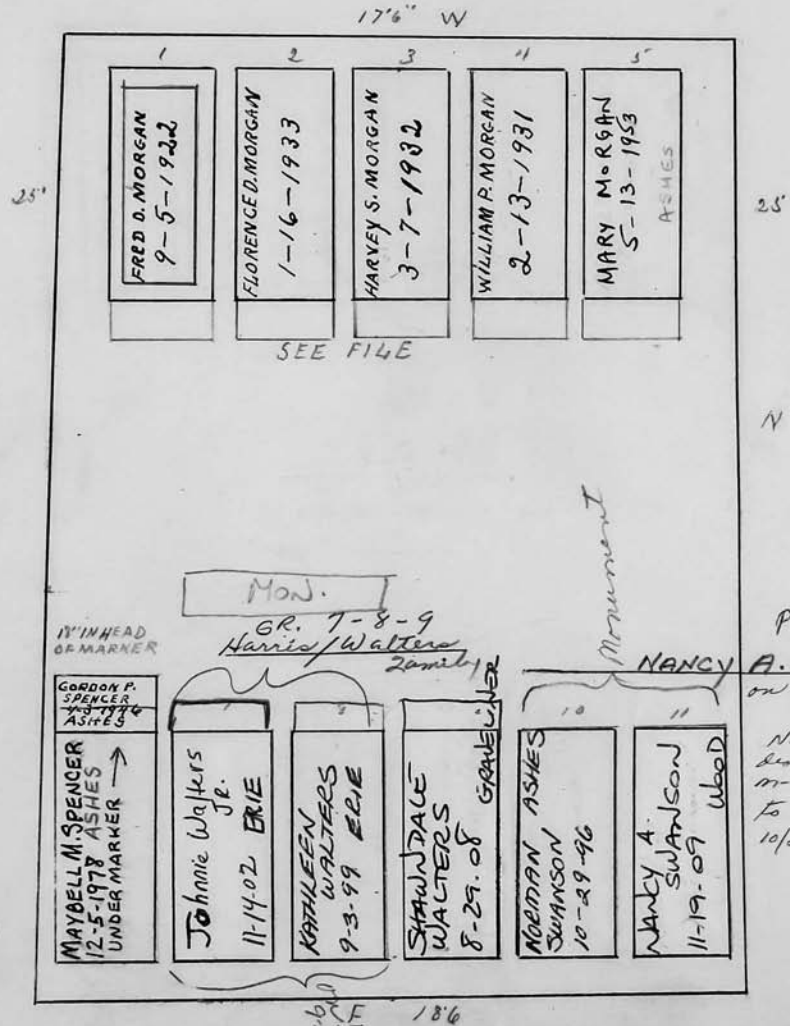 17'6" W
1 2 3 4 5
25'
25'
FRED D. MORGAN
9-5-1922
FLORENCE D. MORGAN
1-16-1933
HARVEY S. MORGAN
3-7-1932
WILLIAM P. MORGAN
2-13-1931
MARY MORGAN
5-13-1953
ASHES
SEE FILE
N
MON.
Monument
GR. 7-8-9
Harris/Walters
Family
18" IN HEAD
OF MARKER
P
NANCY A.
on
GORDON P.
SPENCER
ASHES
MAYBELL M. SPENCER
12-5-1978 ASHES
UNDER MARKER →
Johnnie Walters
JR.
11-14-02 ERIE
KATHLEEN
WALTERS
9-3-99 ERIE
SHAWNDALE
WALTERS
8-29-08
GRAVELINER
10
NORMAN ASHES
SWANSON
10-29-96
11
NANCY A.
SWANSON
11-19-09 WOOD
to
E 18'6